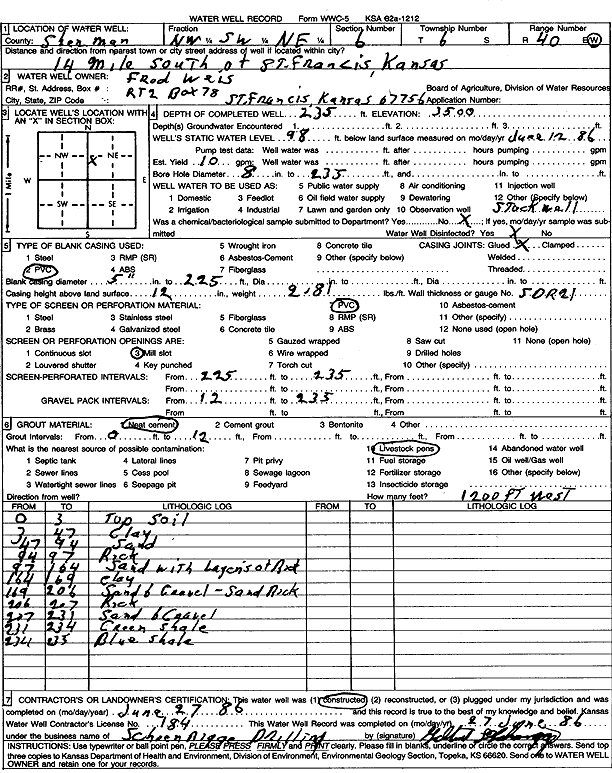 WATER WELL RECORD Form WWC-5 KSA 82a-1212
1 LOCATION OF WATER WELL: Fraction Section Number Township Number Range Number
County: Sherman NW ¼ SW ¼ NE ¼ 6 T 6 S R 40 E/W
Distance and direction from nearest town or city street address of well if located within city?
14 Mile South of St. Francis, Kansas
2 WATER WELL OWNER: Fred Weis
RR#, St. Address, Box # : RT2 Box 78 Board of Agriculture, Division of Water Resources
City, State, ZIP Code : St. Francis, Kansas 67756 Application Number:
3 LOCATE WELL'S LOCATION WITH AN "X" IN SECTION BOX:
N
NW NE
X
W E
SW SE
S
1 Mile
4 DEPTH OF COMPLETED WELL 235 ft. ELEVATION: 3500
Depth(s) Groundwater Encountered 1 ft. 2. ft. 3. ft.
WELL'S STATIC WATER LEVEL 98 ft. below land surface measured on mo/day/yr June 12 86
Pump test data: Well water was ft. after hours pumping gpm
Est. Yield 10 gpm: Well water was ft. after hours pumping gpm
Bore Hole Diameter 8 in. to 235 ft., and in. to ft.
WELL WATER TO BE USED AS: 5 Public water supply 8 Air conditioning 11 Injection well
1 Domestic 3 Feedlot 6 Oil field water supply 9 Dewatering 12 Other (Specify below)
2 Irrigation 4 Industrial 7 Lawn and garden only 10 Observation well Stock well
Was a chemical/bacteriological sample submitted to Department? Yes No X; If yes, mo/day/yr sample was submitted Water Well Disinfected? Yes X No
5 TYPE OF BLANK CASING USED: 5 Wrought iron 8 Concrete tile CASING JOINTS: Glued X Clamped
1 Steel 3 RMP (SR) 6 Asbestos-Cement 9 Other (specify below) Welded
2 PVC 4 ABS 7 Fiberglass Threaded.
Blank casing diameter 5" in. to 225 ft., Dia in. to ft., Dia in. to ft.
Casing height above land surface 12 in., weight 2.81 lbs./ft. Wall thickness or gauge No. SDR21
TYPE OF SCREEN OR PERFORATION MATERIAL: 7 PVC 10 Asbestos-cement
1 Steel 3 Stainless steel 5 Fiberglass 8 RMP (SR) 11 Other (specify)
2 Brass 4 Galvanized steel 6 Concrete tile 9 ABS 12 None used (open hole)
SCREEN OR PERFORATION OPENINGS ARE: 5 Gauzed wrapped 8 Saw cut 11 None (open hole)
1 Continuous slot 3 Mill slot 6 Wire wrapped 9 Drilled holes
2 Louvered shutter 4 Key punched 7 Torch cut 10 Other (specify)
SCREEN-PERFORATED INTERVALS: From 225 ft. to 235 ft., From ft. to ft.
From ft. to ft., From ft. to ft.
GRAVEL PACK INTERVALS: From 12 ft. to 235 ft., From ft. to ft.
From ft. to ft., From ft. to ft.
6 GROUT MATERIAL: 1 Neat cement 2 Cement grout 3 Bentonite 4 Other
Grout Intervals: From 0 ft. to 12 ft., From ft. to ft., From ft. to ft.
What is the nearest source of possible contamination: 10 Livestock pens 14 Abandoned water well
1 Septic tank 4 Lateral lines 7 Pit privy 11 Fuel storage 15 Oil well/Gas well
2 Sewer lines 5 Cess pool 8 Sewage lagoon 12 Fertilizer storage 16 Other (specify below)
3 Watertight sewer lines 6 Seepage pit 9 Feedyard 13 Insecticide storage
Direction from well? How many feet? 1200 FT West
FROM TO LITHOLOGIC LOG FROM TO LITHOLOGIC LOG
0 3 Top Soil
3 47 Clay
47 94 Sand
94 97 Rock
97 164 Sand with Layers of Rock
164 169 Clay
169 206 Sand & Gravel - Sand Rock
206 207 Rock
207 231 Sand & Gravel
231 234 Green shale
234 235 Blue shale
7 CONTRACTOR'S OR LANDOWNER'S CERTIFICATION: This water well was (1) constructed, (2) reconstructed, or (3) plugged under my jurisdiction and was
completed on (mo/day/year) June 27 86 and this record is true to the best of my knowledge and belief. Kansas
Water Well Contractor's License No. 184 This Water Well Record was completed on (mo/day/yr) 27 June 86
under the business name of Drilling by (signature)
INSTRUCTIONS: Use typewriter or ball point pen, PLEASE PRESS FIRMLY and PRINT clearly. Please fill in blanks, underline or circle the correct answers. Send top
three copies to Kansas Department of Health and Environment, Division of Environment, Environmental Geology Section, Topeka, KS 66620. Send one to WATER WELL
OWNER and retain one for your records.